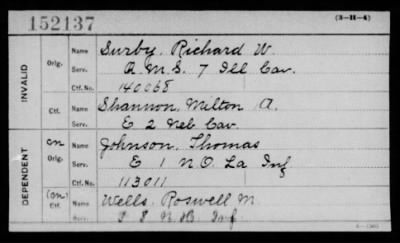 152137 (3-H-4)
INVALID
Orig. Name Surby, Richard W.
Serv. Q.M.S. 7 Ill Cav.
Ctf. No. 140068
Ctf. Name Shannon, Milton A.
Serv. E 2 Neb Cav.
DEPENDENT
on Orig. Name Johnson, Thomas
Serv. E 1 N.O. La Inf
Ctf. No. 113011
(on) Ctf. Name Wells, Roswell M.
Serv. N.H. Inf.